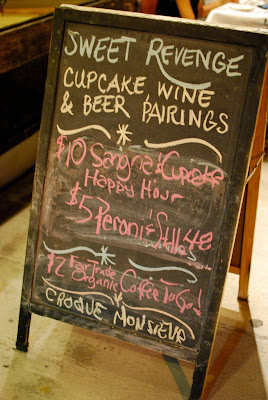 SWEET REVENGE
CUPCAKE WINE
& BEER PAIRINGS
$10 Sangria & Cupcake
Happy Hour
$5 Peroni &
$2 Fair Trade
Organic Coffee To Go!
CROQUE MONSIEUR